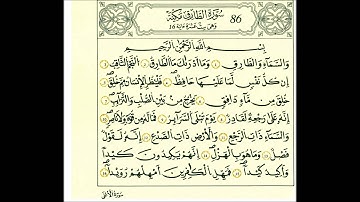 سُورَةُ الطَّارِقِ مَكِّيَّةٌ 86
وَهِيَ سِتَّ عَشْرَةَ آيَةً 16
بِسْمِ اللَّهِ الرَّحْمَٰنِ الرَّحِيمِ
وَالسَّمَآءِ وَالطَّارِقِ ١ وَمَآ أَدْرَىٰكَ مَا الطَّارِقُ ٢ النَّجْمُ الثَّاقِبُ ٣
إِن كُلُّ نَفْسٍ لَّمَّا عَلَيْهَا حَافِظٌ ٤ فَلْيَنظُرِ الْإِنسَٰنُ مِمَّ خُلِقَ ٥
خُلِقَ مِن مَّآءٍ دَافِقٍ ٦ يَخْرُجُ مِنۢ بَيْنِ الصُّلْبِ وَالتَّرَآئِبِ ٧
إِنَّهُۥ عَلَىٰ رَجْعِهِۦ لَقَادِرٌ ٨ يَوْمَ تُبْلَى السَّرَآئِرُ ٩ فَمَا لَهُۥ مِن قُوَّةٍ وَلَا نَاصِرٍ ١٠
وَالسَّمَآءِ ذَاتِ الرَّجْعِ ١١ وَالْأَرْضِ ذَاتِ الصَّدْعِ ١٢ إِنَّهُۥ لَقَوْلٌ
فَصْلٌ ١٣ وَمَا هُوَ بِالْهَزْلِ ١٤ إِنَّهُمْ يَكِيدُونَ كَيْدًا ١٥
وَأَكِيدُ كَيْدًا ١٦ فَمَهِّلِ الْكَٰفِرِينَ أَمْهِلْهُمْ رُوَيْدًۢا ١٧
سُورَةُ الْأَعْلَىٰ